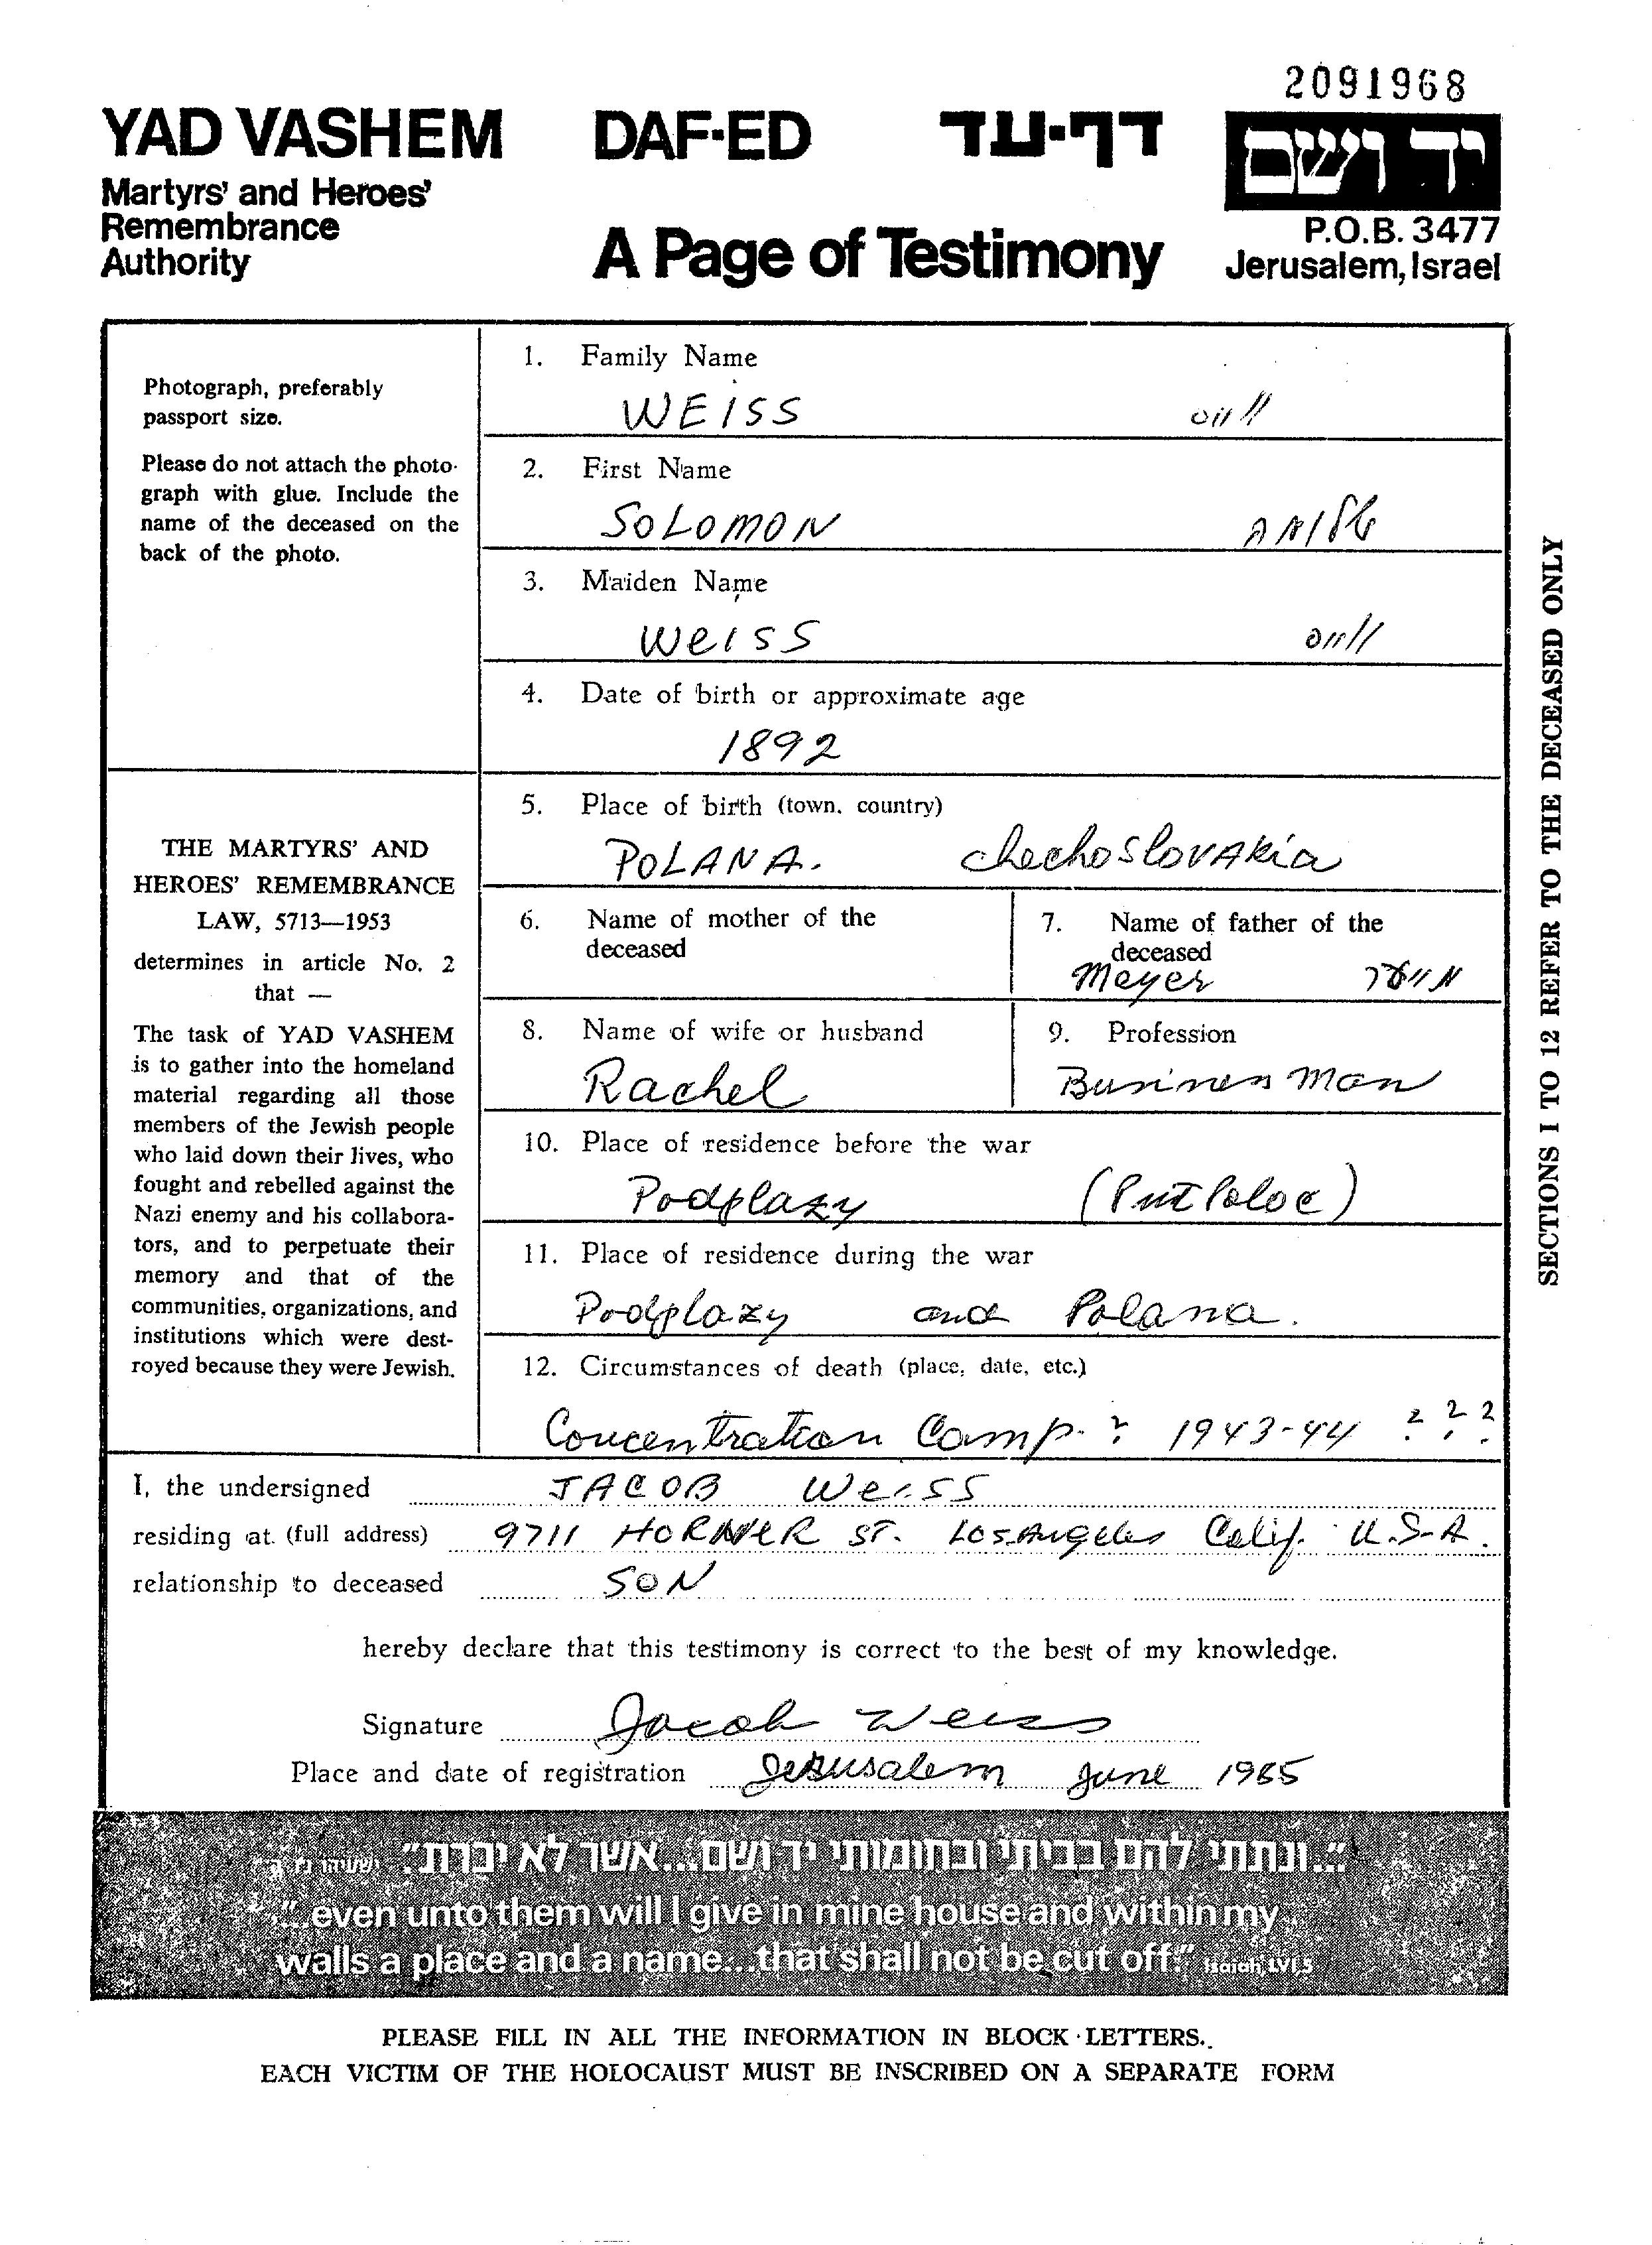 2091968
YAD VASHEM DAF-ED דף-עד יד ושם
Martyrs' and Heroes'
Remembrance
Authority
A Page of Testimony
P.O.B. 3477
Jerusalem, Israel
Photograph, preferably
passport size.
Please do not attach the photo-
graph with glue. Include the
name of the deceased on the
back of the photo.
THE MARTYRS' AND
HEROES' REMEMBRANCE
LAW, 5713—1953
determines in article No. 2
that —
The task of YAD VASHEM
is to gather into the homeland
material regarding all those
members of the Jewish people
who laid down their lives, who
fought and rebelled against the
Nazi enemy and his collabora-
tors, and to perpetuate their
memory and that of the
communities, organizations, and
institutions which were dest-
royed because they were Jewish.
1. Family Name
WEISS ווייס
2. First Name
SOLOMON
3. Maiden Name
Weiss ווייס
4. Date of birth or approximate age
1892
5. Place of birth (town, country)
POLANA. Chechoslovakia
6. Name of mother of the
deceased
7. Name of father of the
deceased
Meyer
8. Name of wife or husband
Rachel
9. Profession
Business man
10. Place of residence before the war
Podplazy
11. Place of residence during the war
Podplazy and Polana.
12. Circumstances of death (place, date, etc.)
Concentration Camp. ? 1943-44 ? ? ?
SECTIONS 1 TO 12 REFER TO THE DECEASED ONLY
I, the undersigned JACOB Weiss
residing at (full address) 9711 HORNER ST. Los Angeles Calif. U.S.A.
relationship to deceased SON
hereby declare that this testimony is correct to the best of my knowledge.
Signature Jacob Weiss
Place and date of registration Jerusalem June 1985
"...ונתתי להם בביתי ובחומותי יד ושם...אשר לא יכרת."
"...even unto them will I give in mine house and within my
walls a place and a name...that shall not be cut off." Isaiah, LVI,5
PLEASE FILL IN ALL THE INFORMATION IN BLOCK LETTERS.
EACH VICTIM OF THE HOLOCAUST MUST BE INSCRIBED ON A SEPARATE FORM